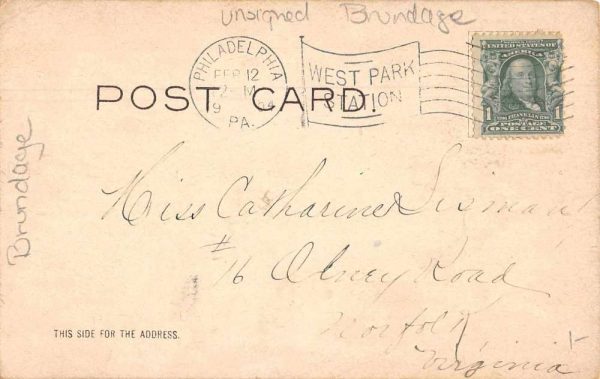 unsigned Brundage
PHILADELPHIA
FEB 12
2 - M
9 04
PA.
WEST PARK
STATION
UNITED STATES OF
AMERICA
1 FRANKLIN 1
POSTAGE
ONE CENT
POST CARD.
Brundage
Miss Catharine
# 76 Olney Road
Norfolk
Virginia
THIS SIDE FOR THE ADDRESS.